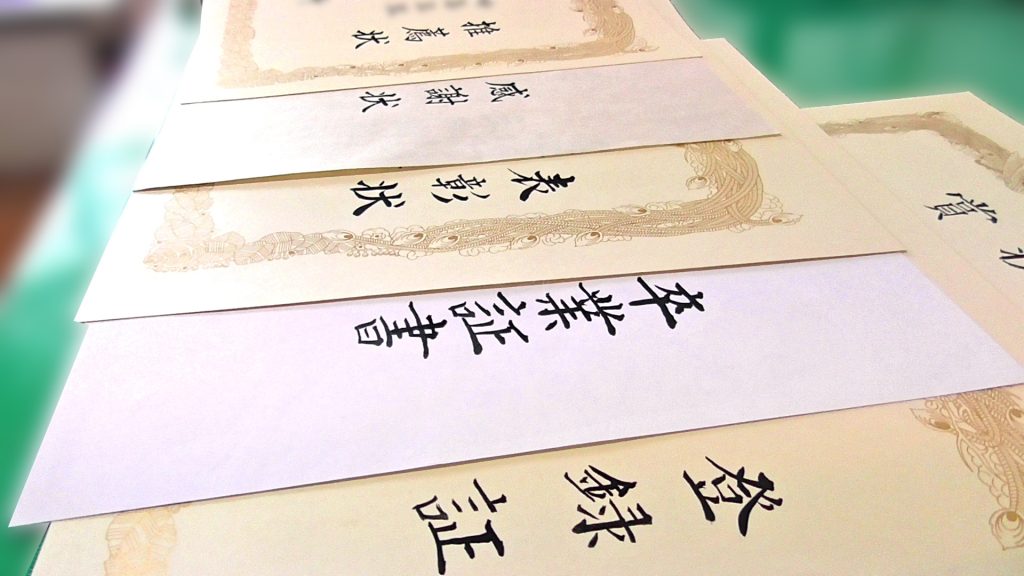 推薦状
感謝状
表彰状
卒業証書
登録証
賞状